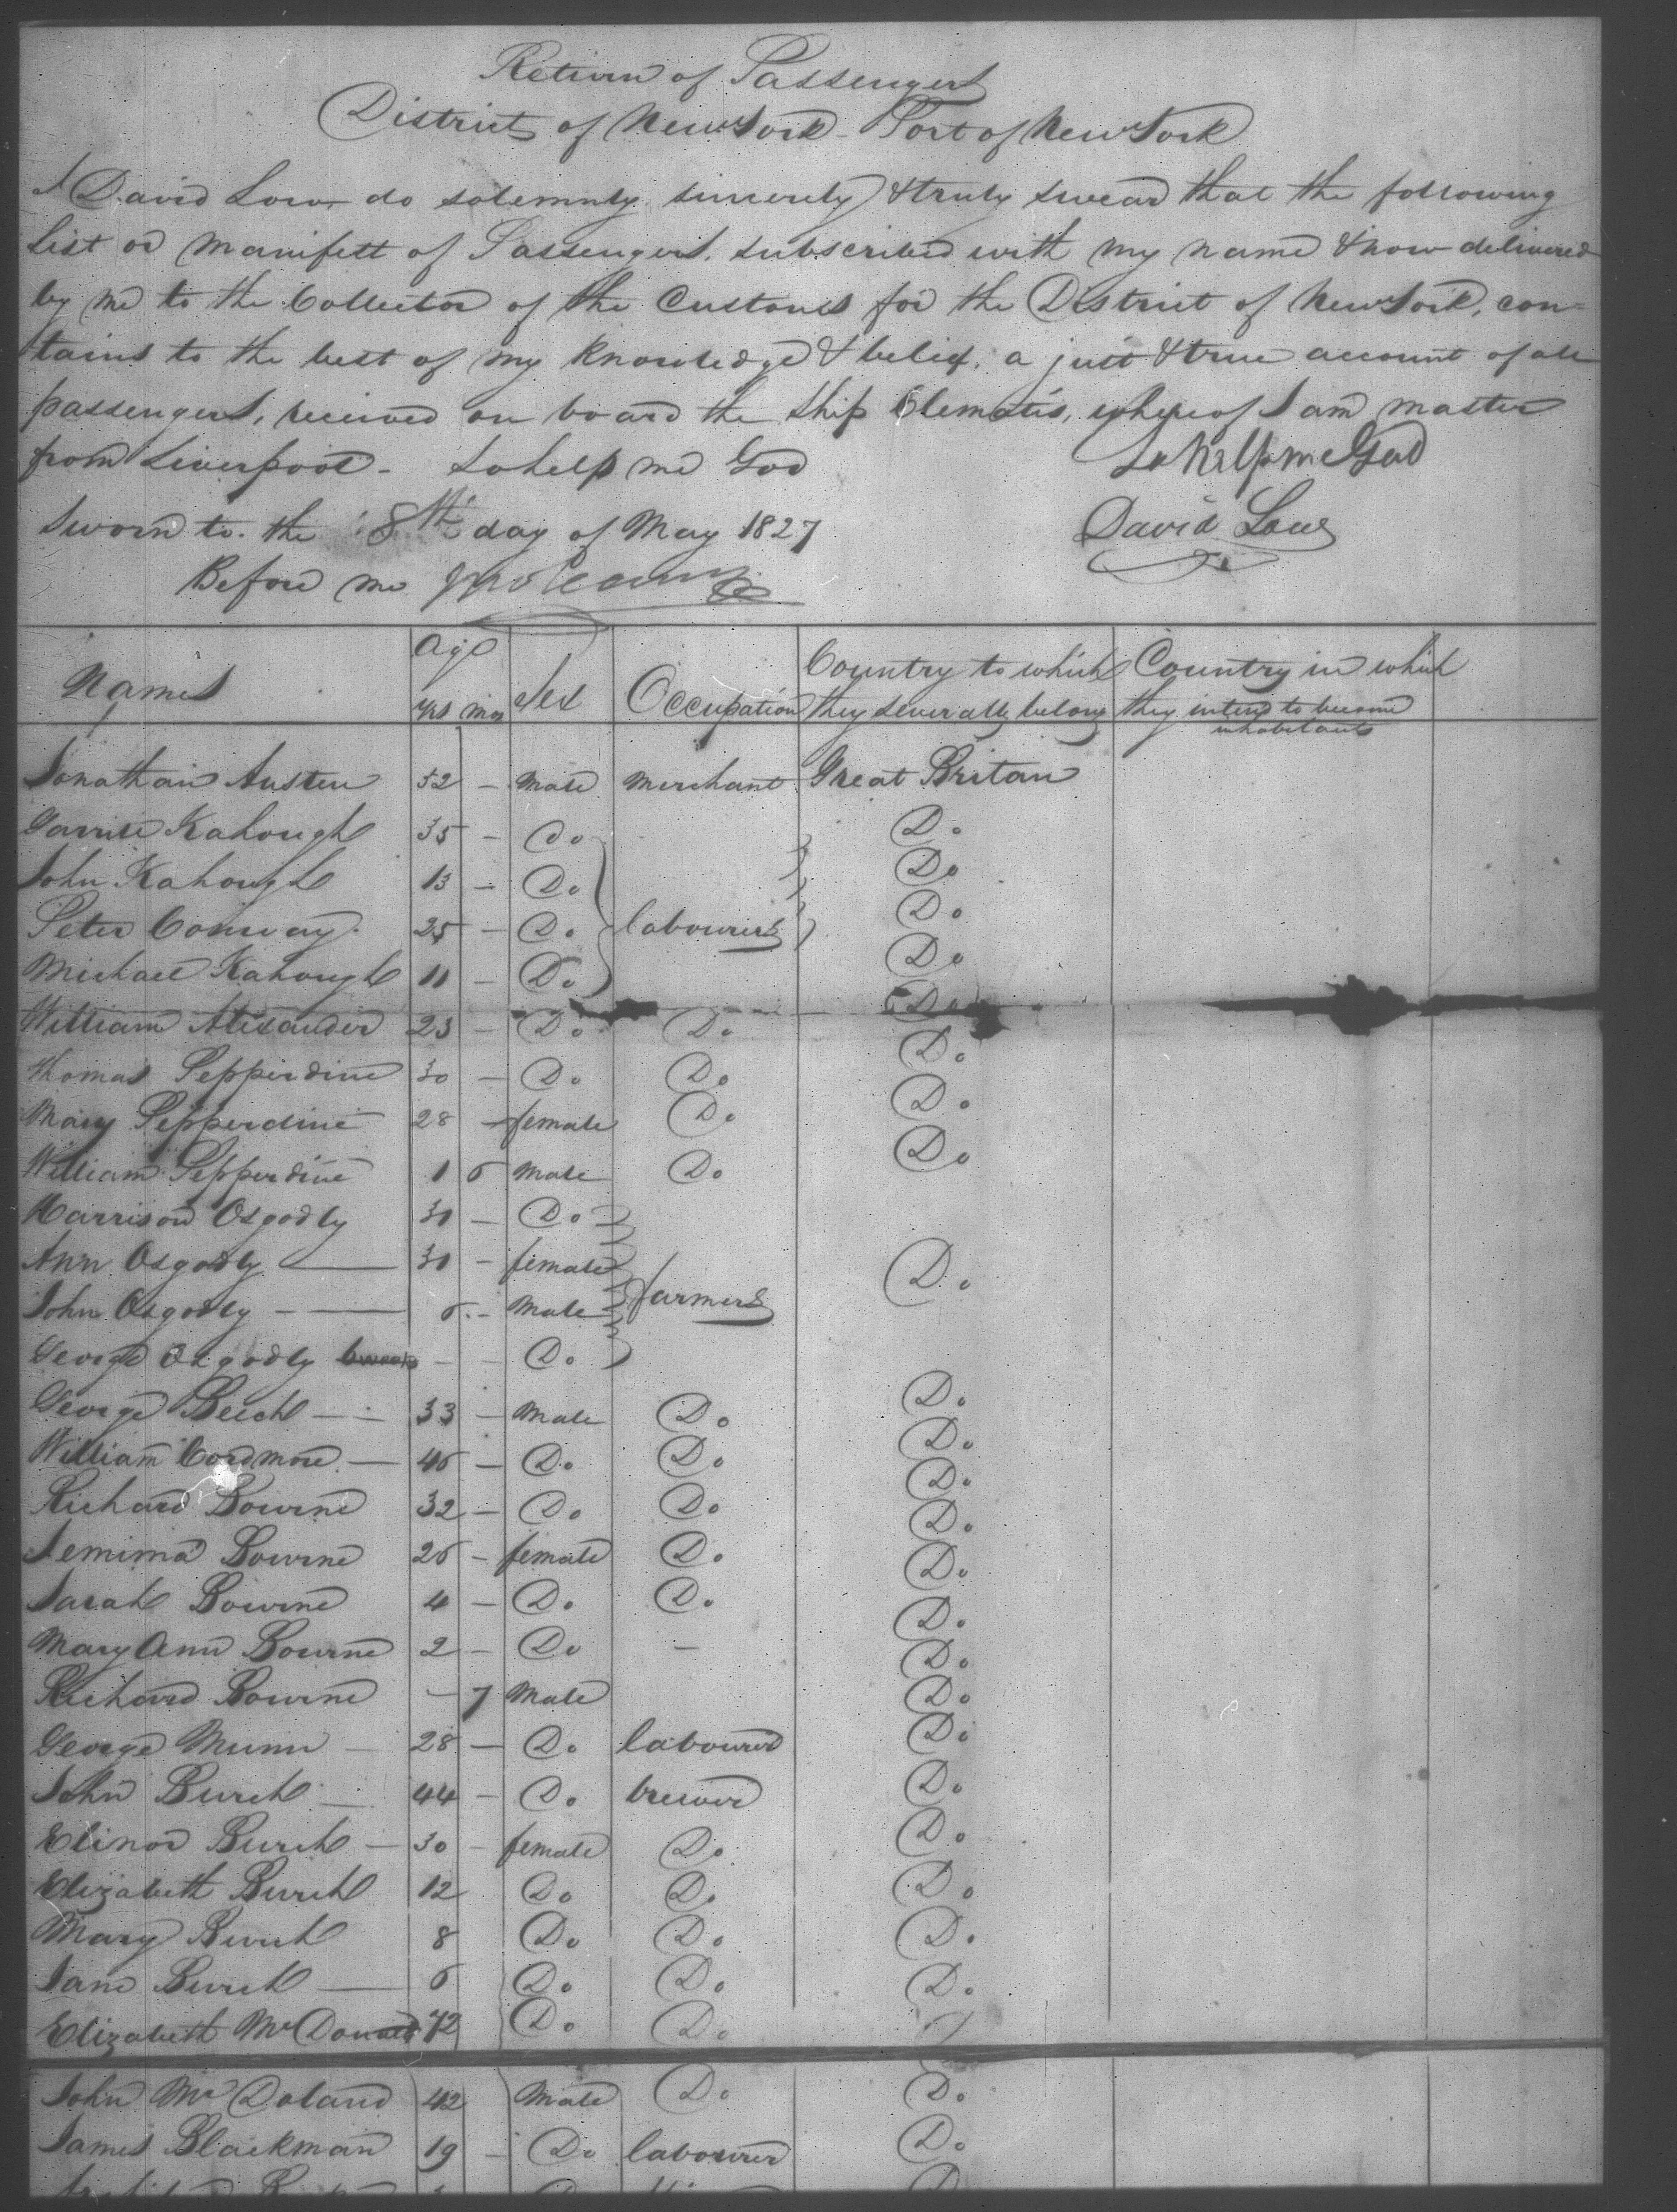 Return of Passengers
District of New York - Port of New York
I David Low do solemnly sincerely & truly swear that the following
List or Manifest of Passengers, subscribed with my name & now delivered
by me to the Collector of the Customs for the District of New York, con=
tains to the best of my knowledge & belief, a just & true account of all
passengers, received on board the Ship Clematis, whereof I am master
from Liverpool - So help me God
So help me God
Sworn to the 8th day of May 1827
David Low
Before me
Names Age yrs mos Sex Occupation Country to which they severally belong Country in which they intend to become inhabitants
Jonathan Austen 52 - male merchant Great Britan
Kahough 35 - Do Do
John Kahough 13 - Do Do
Peter Conway 25 - Do labourers Do
Michael Kahough 11 - Do Do
William Alexander 23 - Do Do Do
Thomas Pepperdine 30 - Do Do Do
Mary Pepperdine 28 - female Do Do
William Pepperdine 1 6 male Do Do
Harrison Osgodly 31 - Do
Ann Osgodly 30 - female Do
John Osgodly - 6 - male farmers
George Osgodly 6 weeks - - Do
George Beech - 33 - male Do Do
William Cordmore - 46 - Do Do Do
Richard Bourne 32 - Do Do Do
Jemima Bourne 26 - female Do Do
Sarah Bourne 4 - Do Do Do
Mary Ann Bourne 2 - Do - Do
Richard Bourne - 7 male Do
George Munn - 28 - Do labourer Do
John Burch - 44 - Do brewer Do
Elinor Burch - 30 - female Do Do
Elizabeth Burch 12 Do Do Do
Mary Burch 8 Do Do Do
Jane Burch - 6 Do Do Do
Elizabeth McDonald 72 Do Do
John McDoland 42 male Do Do
James Blackman 19 - Do labourer Do